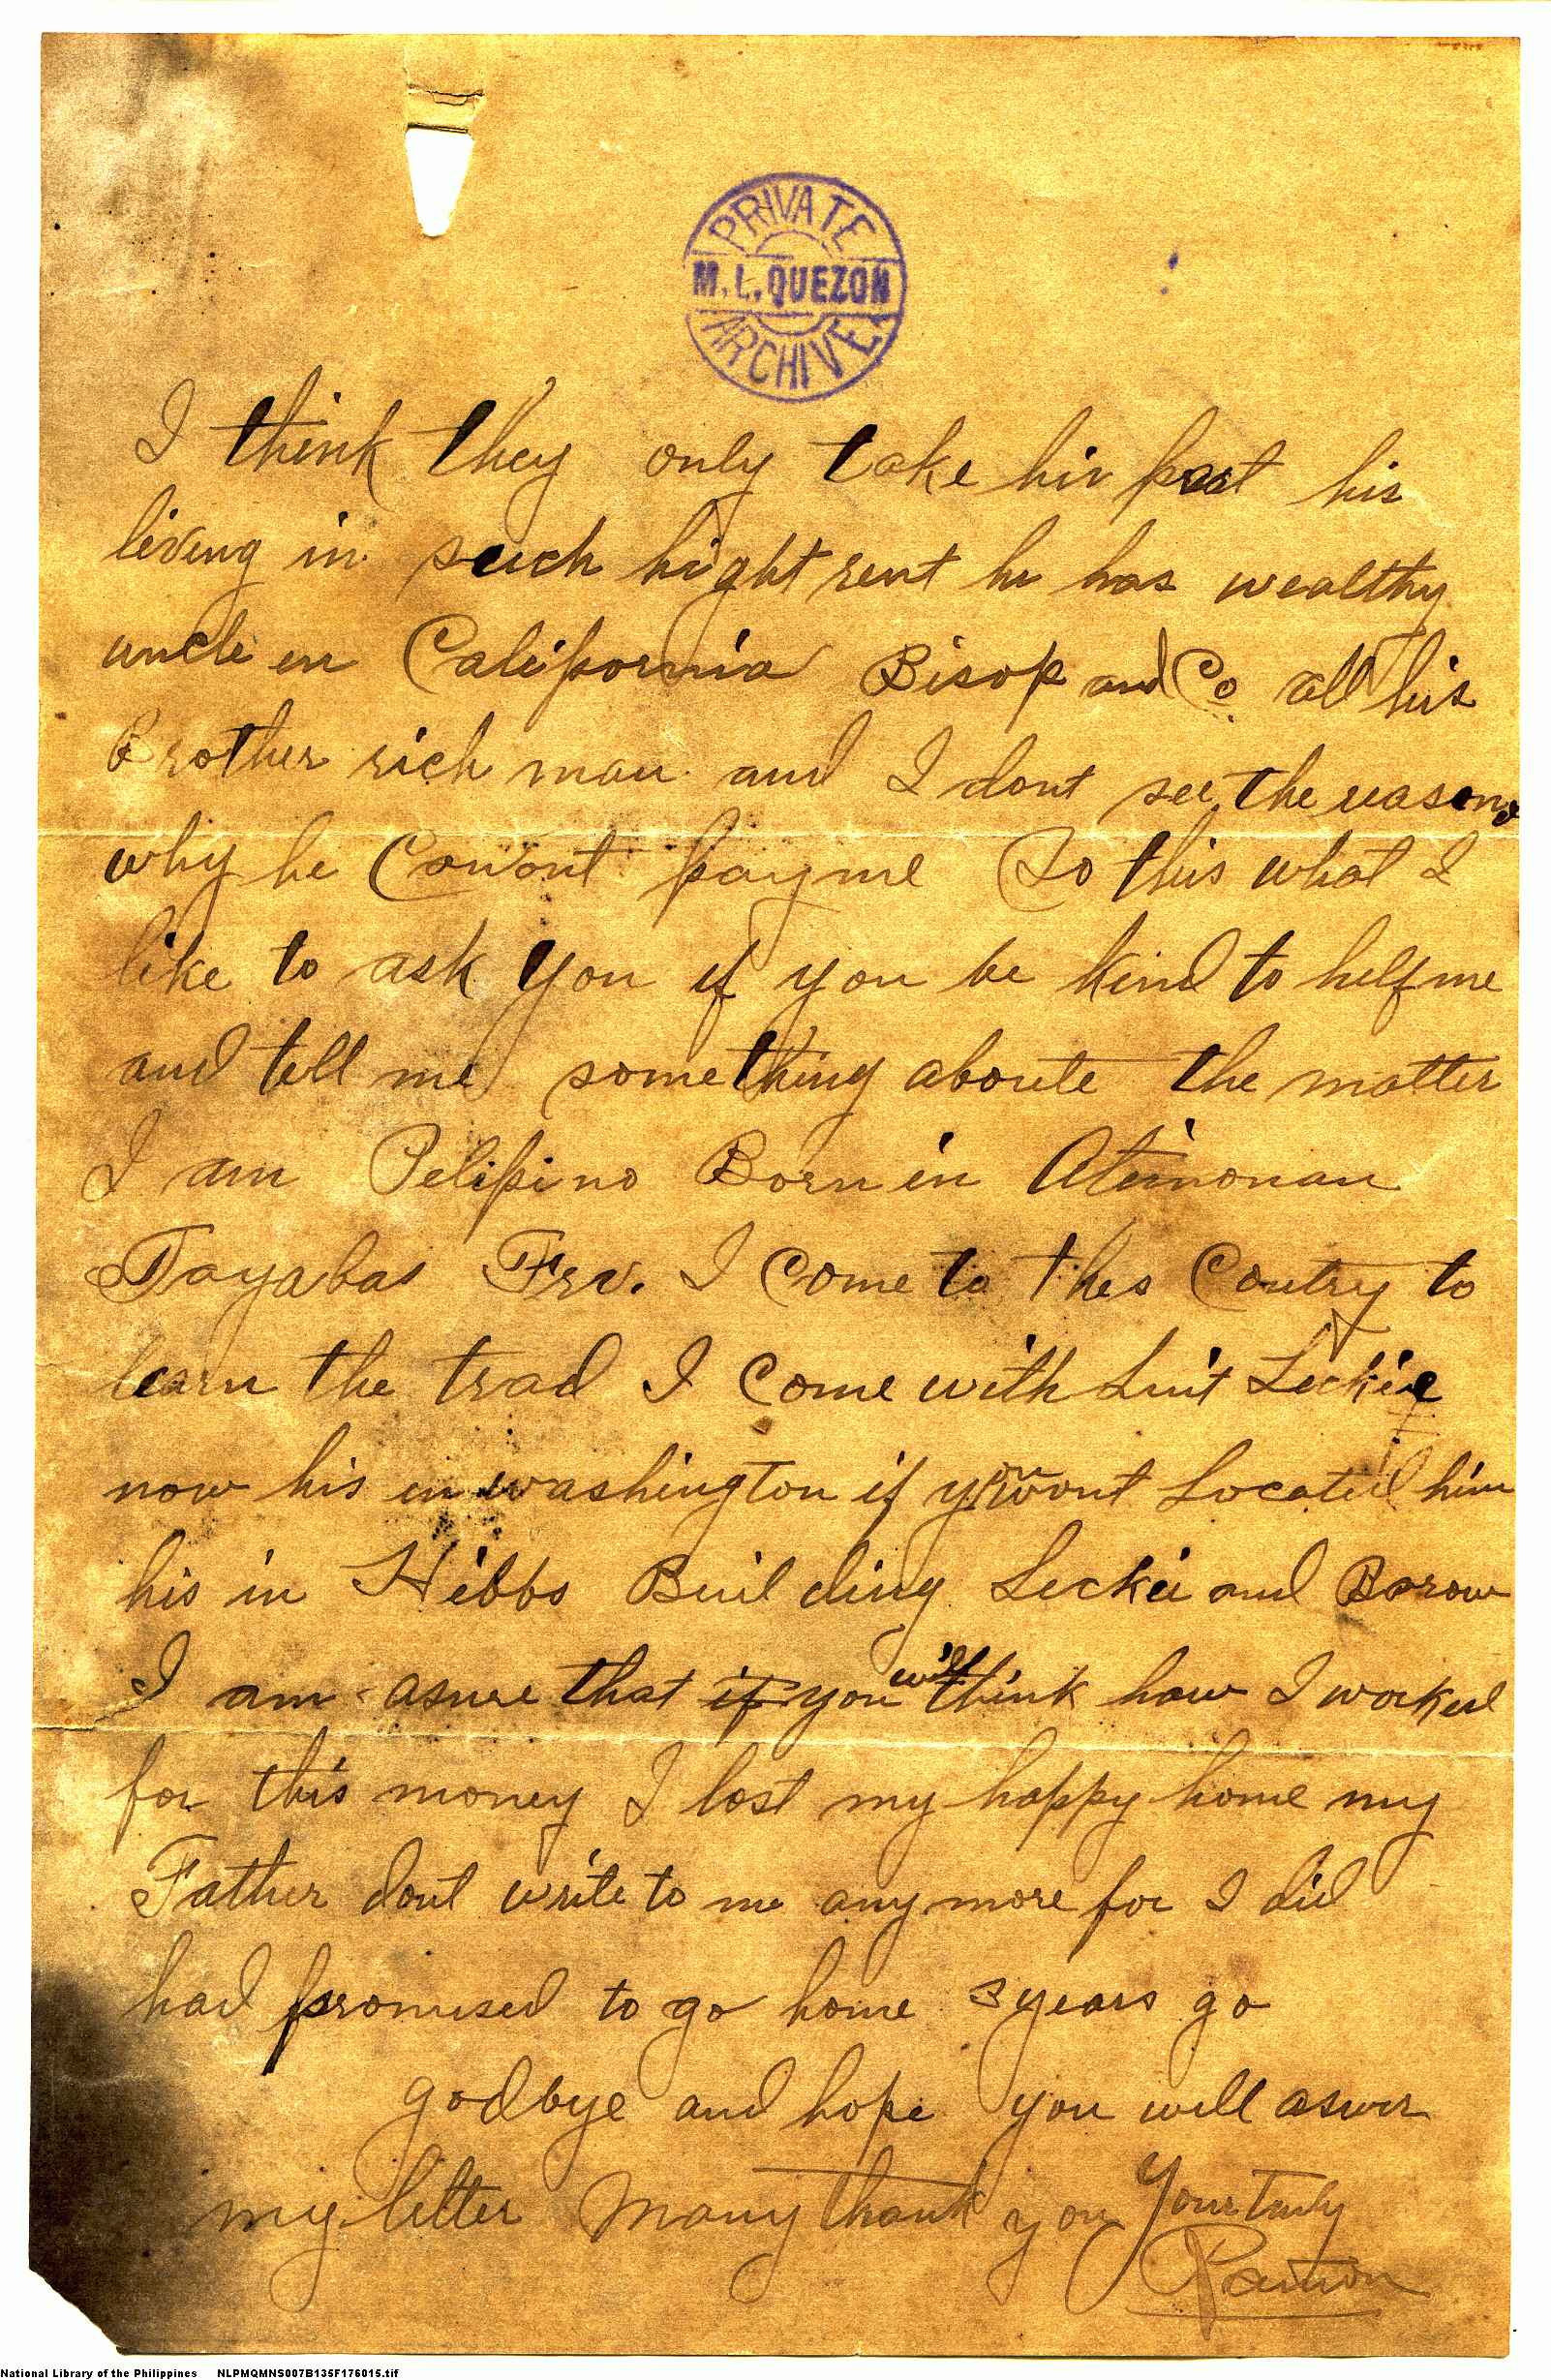 PRIVATE
M. L. QUEZON
ARCHIVE
I think they only take hir part his
living in such hight rent he has wealthy
uncle en California Bisop and Co all his
Brother rich man and I dont see the reasons
why he Conont pay me So this what I
like to ask you if you be kind to help me
and tell me something aboute the matter
I am Pelipino Born in Atimonan
Tayabas Prv. I Come to thes Coutry to
learn the trad I Come with Luit Leckie
now his in washington if you wont Located him
his in Hibbs Building Leckie and Barow
I am asure that if you will think how I worked
for this money I lost my happy home my
Father dont write to me any more for I did
had promised to go home 3 years go
godbye and hope you will aswer
my letter Many thank you Your truly
Ramon
National Library of the Philippines NLPMQMNS007B135F176015.tif